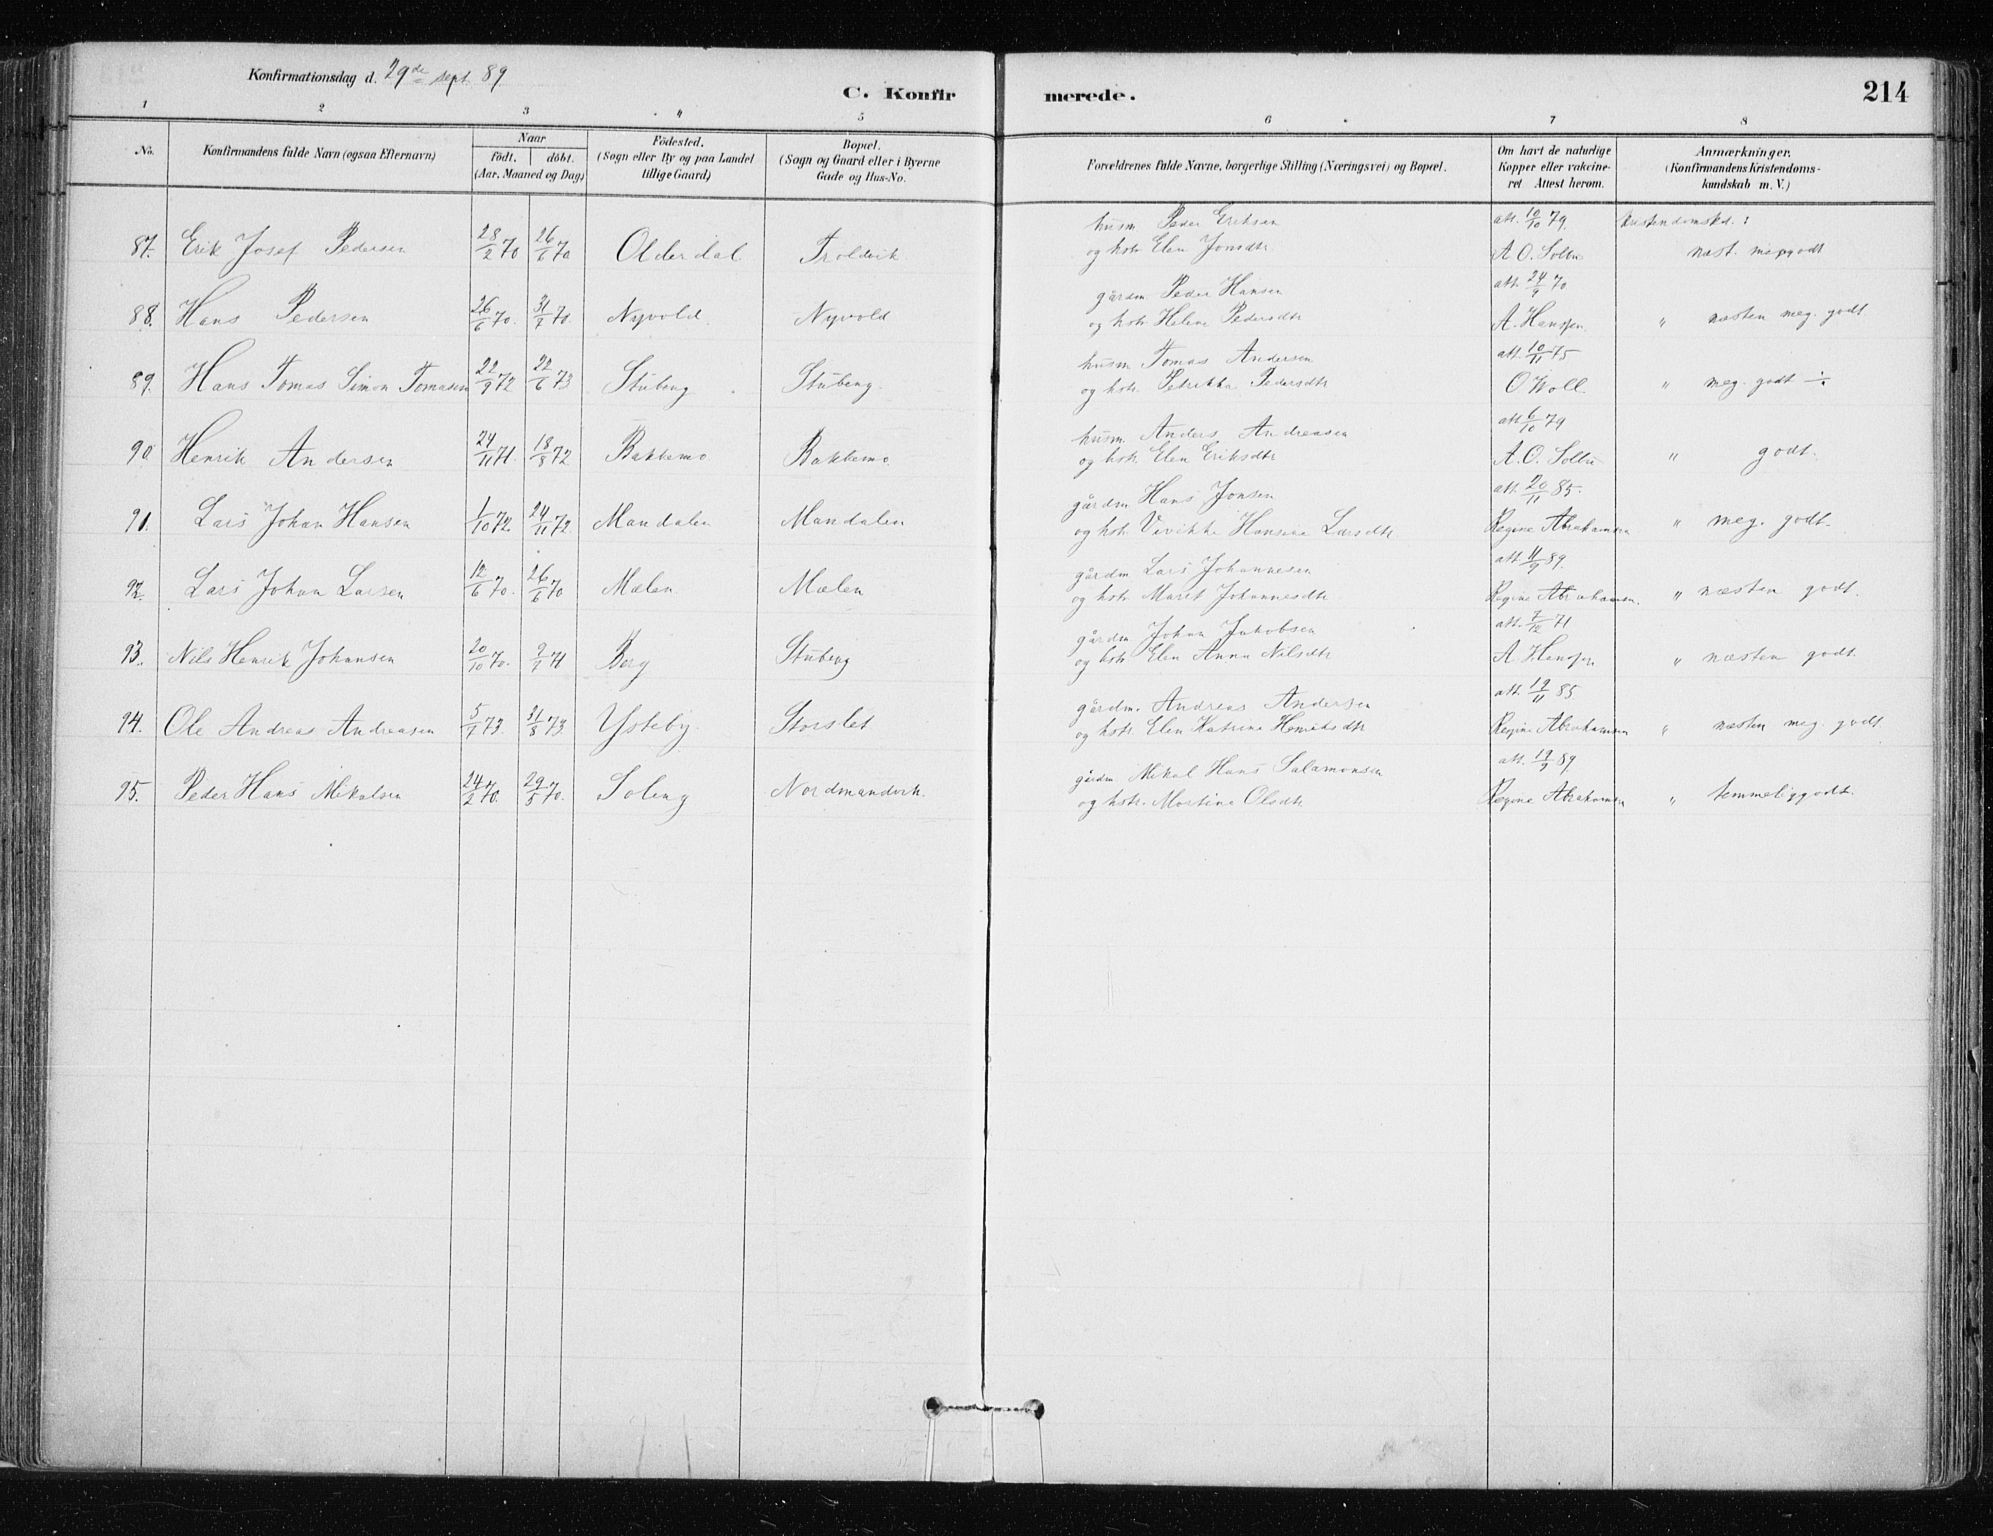 Konfirmationsdag d. 29de sept. 89
C. Konfirmerede.
214
1 2 3 " 5 6 7 8
No.
Konfirmandens fulde Navn (ogsaa Efternavn)
Naar
födt. döbt.
(Aar, Maaned og Dag)
Födested.
(Sogn eller By og paa Landet
tillige Gaard)
Bopæl.
(Sogn og Gaard eller i Byerne
Gade og Hus-No.
Forældrenes fulde Navne, borgerlige Stilling (Næringsvei) og Bopæl.
Om havt de naturlige
Kopper eller vakcine-
ret. Attest herom.
Anmærkninger.
(Konfirmandens Kristendoms-
kundskab m. V.)
husm. Peder Eriksen att. 10/10 79. kristendomskd.:
87. Erik Josef Pedersen 28/2 70 26/6 70 Olderdal Troldvik og hstr. Elen Jonsdtr A O. Solbu næst. megodt
gårdm. Peder Hansen att. 24/9 70
88. Hans Pedersen 26/6 70. 31/7 70. Nyvold. Nyvold og hstr. Helene Pedersdtr A. Hanssen " næsten meg. godt
husm. Tomas Andersen att. 10/11 75
89. Hans Tomas Simon Tomasen 22/9 72 22/6 73 Stubeng Stubeng. og hstr. Petrikka Pedersdtr O Woll " meg. godt ÷
husm. Anders Andreasen att. 6/10 79
90. Henrik Andersen 24/11 71. 18/8 72 Bakkemo Bakkemo og hstr. Elen Eriksdtr A. O. Solbu " godt.
gårdm. Hans Jonsen att. 20/11 85.
91. Lars Johan Hansen 1/10 72. 24/11 72 Mandalen Mandalen og hstr. Vivikke Hansine Larsdtr Regine Abrahamsen " meg. godt.
gårdm. Lars Johannesen att. 11/9 89.
92. Lars Johan Larsen 12/6 70. 26/6 70 Mælen Mælen og hstr. Marit Johannesdtr Regine Abrahamsen. " næsten godt.
gårdm. Johan Jakobsen att. 7/12 71
93. Nils Henrik Johansen 20/10 70. 9/7 71 Berg Stubeng og hstr. Elen Anna Nilsdtr A Hanssen " næsten godt
gårdm. Andreas Andersen att. 19/11 85
94. Ole Andreas Andreasen 5/7 73. 31/8 73 Ysteby. Storslet og hstr. Elen Katrine Henriksdtr Regine Abrahamsen " næsten meg. godt
gårdm Mikal Hans Salamonsen att. 19/9 89
95. Peder Hans Mikalsen 24/2 70. 29/5 70. Soleng Nordmandvik. og hstr. Martine Olsdtr Regine Abrahamsen " temmeliggodt.